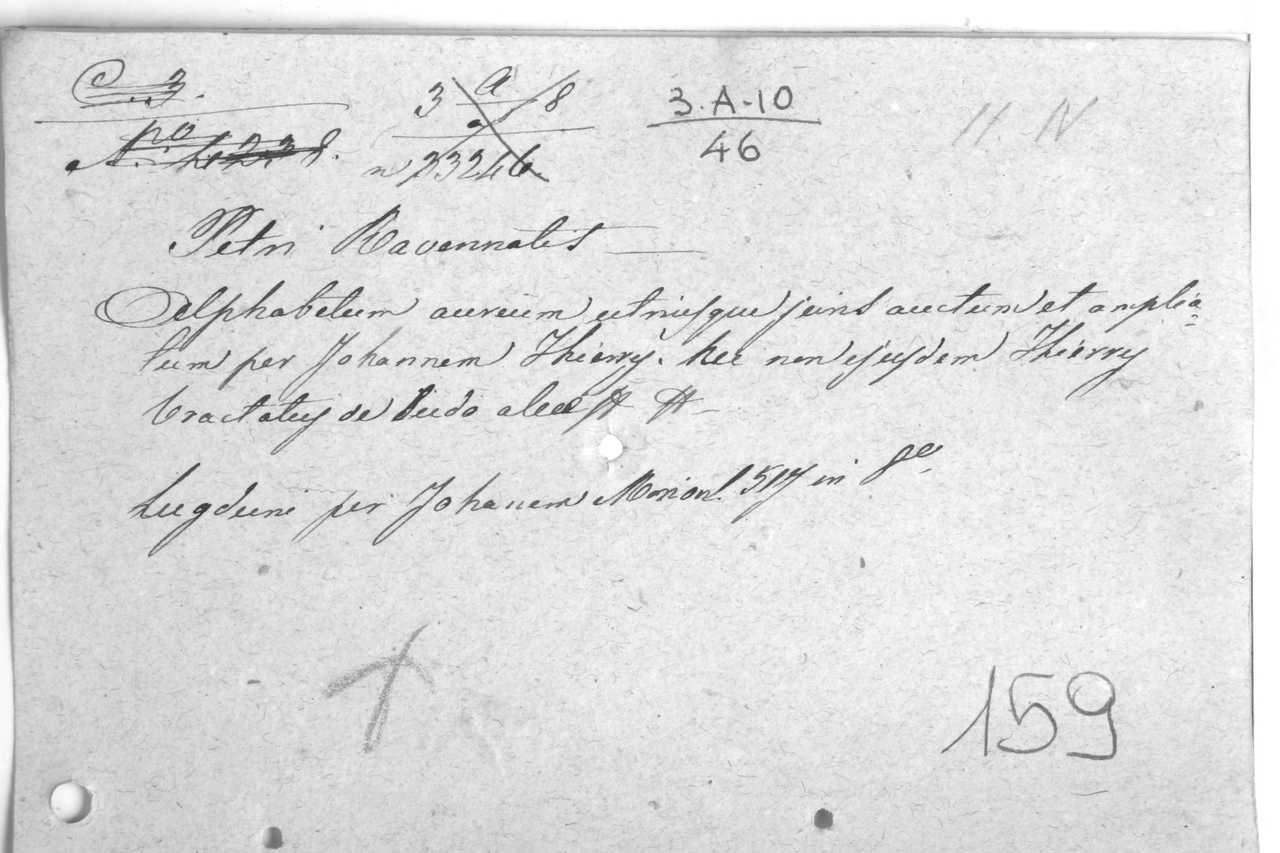 C. 3.
3 A 8
3·A-10
46
nº 33246
Petri Ravennatis
Alphabetum aureum utriusque juris auctum et amplia=
tum per Johannem Thierry. Nec non ejusdem Thierry
tractatus de ludo aleæ
Lugduni per Johannem Morion 517 in 8º
159